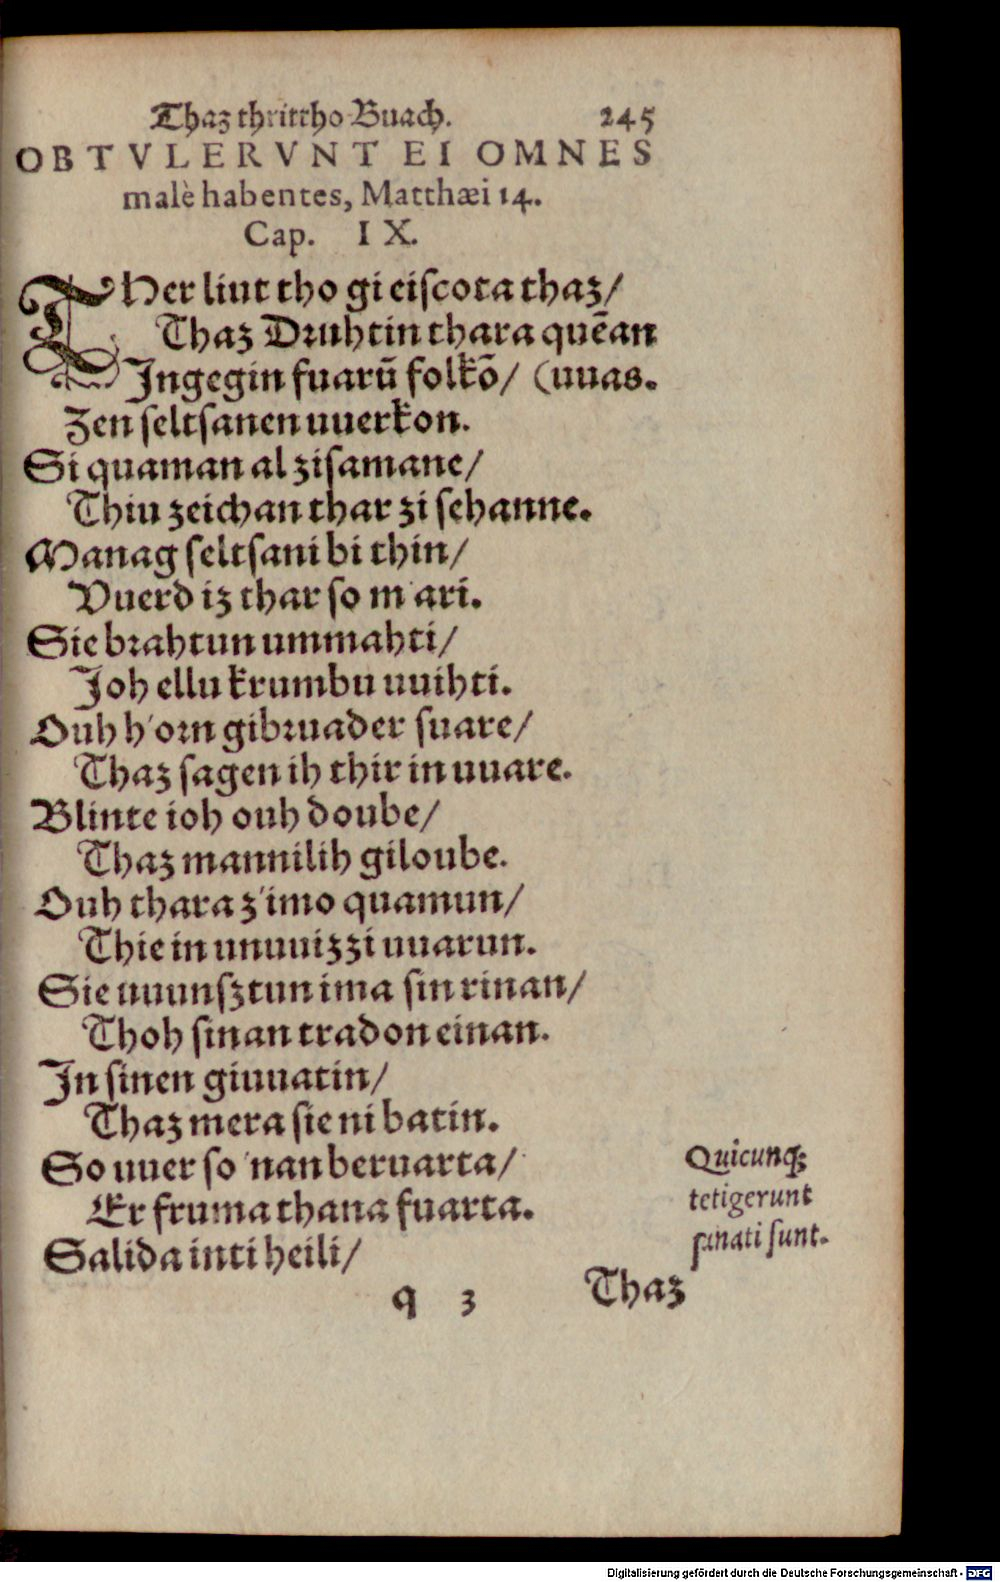 Thaz thrittho Buach. 245
OBTVLERVNT EI OMNES
malè habentes, Matthæi 14.
Cap. IX.
THer liut tho gi eiscota thaz/
Thaz Druhtin thara quēan
Ingegin fuarū folkō/ (uuas.
Zen seltsanen uuerkon.
Si quaman al zisamane/
Thiu zeichan thar zi sehanne.
Manag seltsani bi thin/
Vuerd iz thar so m'ari.
Sie brahtun ummahti/
Joh ellu krumbu uuihti.
Ouh h'orn gibruader suare/
Thaz sagen ih thir in uuare.
Blinte ioh ouh doube/
Thaz mannilih giloube.
Ouh thara z'imo quamun/
Thie in unuuizzi uuarun.
Sie uuunsztun ima sin rinan/
Thoh sinan tradon einan.
In sinen giuuatin/
Thaz mera sie ni batin.
So uuer so 'nan beruarta/
Er fruma thana fuarta.
Salida inti heili/
Quicunq;
tetigerunt
sanati sunt.
q 3 Thaz
Digitalisierung gefördert durch die Deutsche Forschungsgemeinschaft - DFG